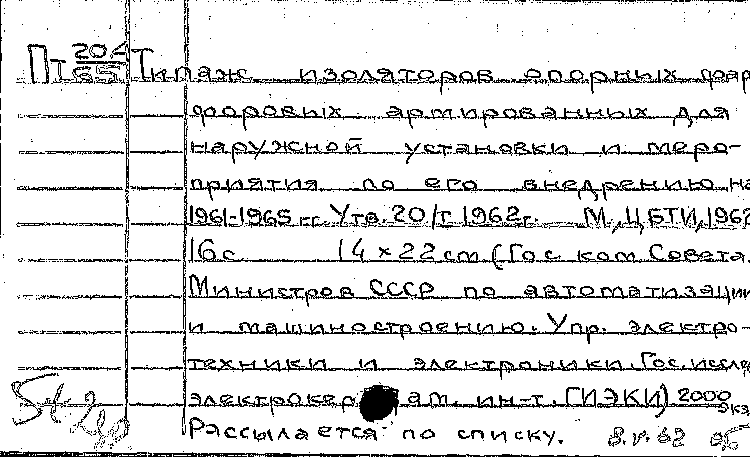 Пт 20А/65 Типаж изоляторов опорных фар
форовых армированных для
наружной установки и меро-
приятия по его внедрению на
1961-1965 гг. Утв. 20/I 1962г. М., ЦБТИ, 1962
16 с 14 x 22 см (Гос ком Совета
Министров СССР по автоматизации
и машиностроению. Упр. электро-
техники и электроники. Гос. исслед
электрокер ам. ин-т. ГИЭКИ) 2000 экз
Рассылается по списку. 8.V.62